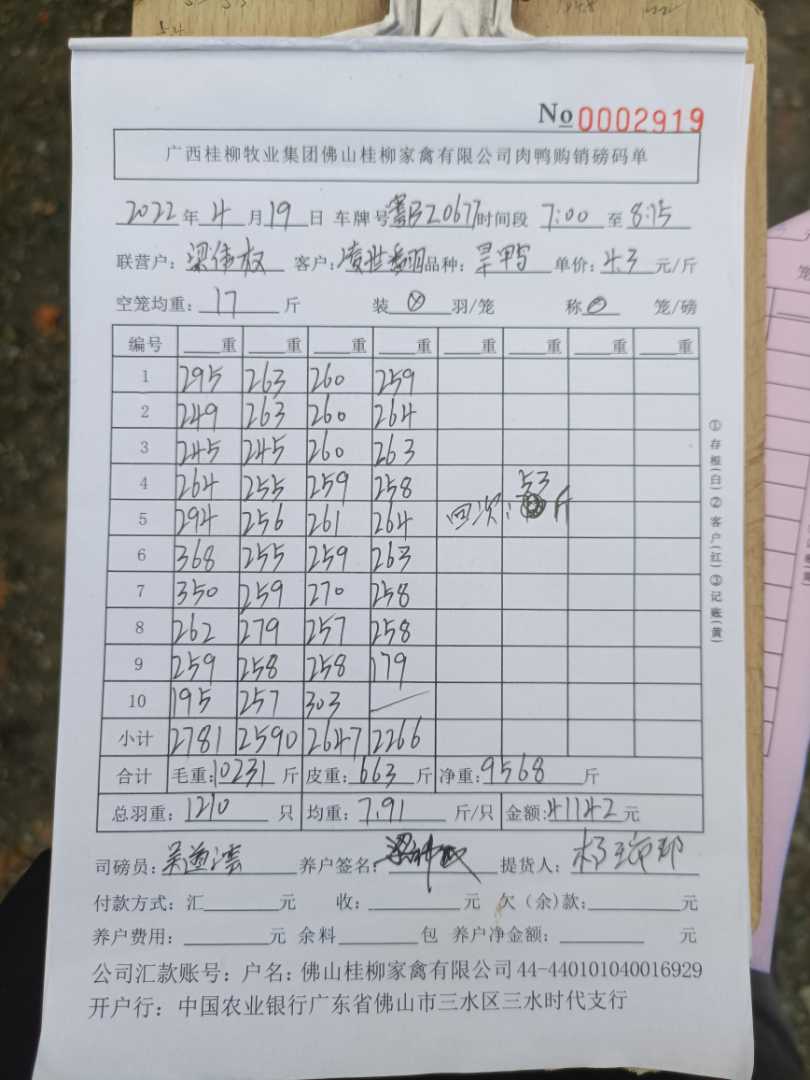 No 0002919
广西桂柳牧业集团佛山桂柳家禽有限公司肉鸭购销磅码单
2022年4月19日 车牌号 Z0677 时间段 7:00 至 8:15
联营户: 梁伟权 客户: 凌世 品种: 旱鸭 单价: 4.3 元/斤
空笼均重: 17 斤 装 羽/笼 称 笼/磅
编号 重 重 重 重 重 重 重 重
1 295 263 260 259
2 249 263 260 264
3 245 245 260 263
4 264 255 259 258 53
5 294 256 261 264 回次: 斤
6 368 255 259 263
7 350 259 270 258
8 262 279 257 258
9 259 258 258 179
10 195 257 303
小计 2781 2590 2647 2266
合计 毛重: 10231 斤 皮重: 663 斤 净重: 9568 斤
总羽重: 1210 只 均重: 7.91 斤/只 金额: 41142 元
司磅员: 养户签名: 提货人:
付款方式: 汇 元 收: 元 欠(余)款: 元
养户费用: 元 余料 包 养户净金额: 元
公司汇款账号: 户名: 佛山桂柳家禽有限公司 44-440101040016929
开户行: 中国农业银行广东省佛山市三水区三水时代支行
①存根(白)②客户(红)③记账(黄)